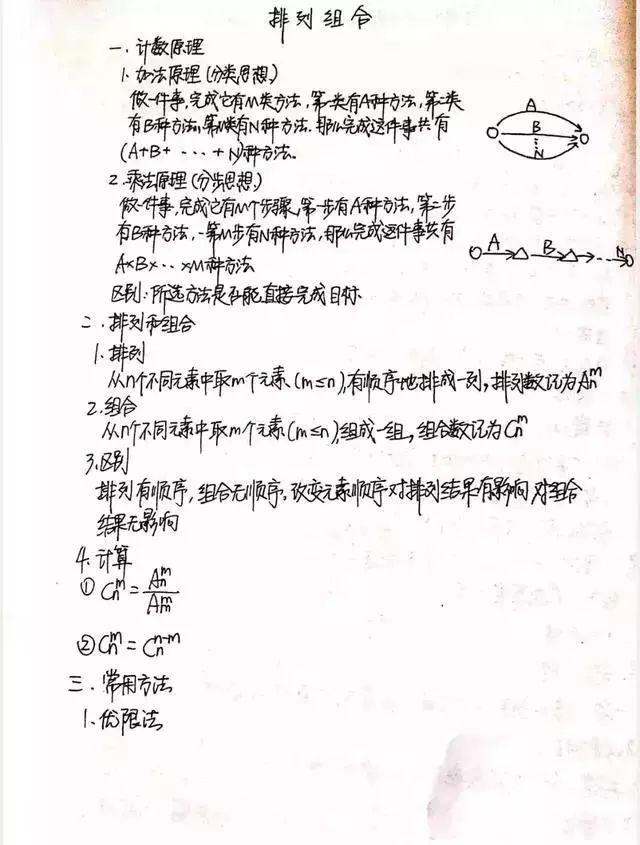 排列组合
一. 计数原理
1. 加法原理(分类思想)
做一件事,完成它有M类方法,第一类有A种方法,第二类
有B种方法,第M类有N种方法.那么完成这件事共有
(A+B+ ··· +N)种方法.
A
B
N
2. 乘法原理(分步思想)
做一件事,完成它有M个步骤,第一步有A种方法,第二步
有B种方法,··第M步有N种方法,那么完成这件事共有
A×B×···×M种方法
A B N
区别:所选方法是否能直接完成目标
二. 排列和组合
1. 排列
从n个不同元素中取m个元素(m≤n),有顺序地排成一列,排列数记为Aₙᵐ
2. 组合
从n个不同元素中取m个元素(m≤n),组成一组,组合数记为Cₙᵐ
3. 区别
排列有顺序,组合无顺序,改变元素顺序对排列结果有影响,对组合
结果无影响
4. 计算
① Cₙᵐ = Aₙᵐ/Aₘᵐ
② Cₙᵐ = Cₙⁿ⁻ᵐ
三. 常用方法
1. 优限法